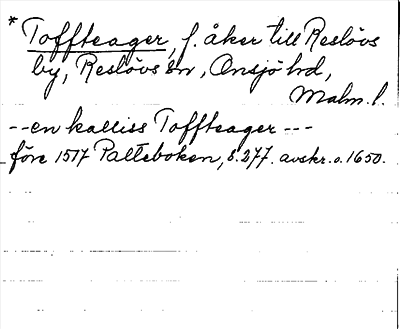 * Toffteager, f. åker till Reslövs
by, Reslövs sn, Onsjö hd,
Malm. l.
-- en kalliss Toffteager ---
före 1517 Palteboken, s. 277. avskr. o. 1650.